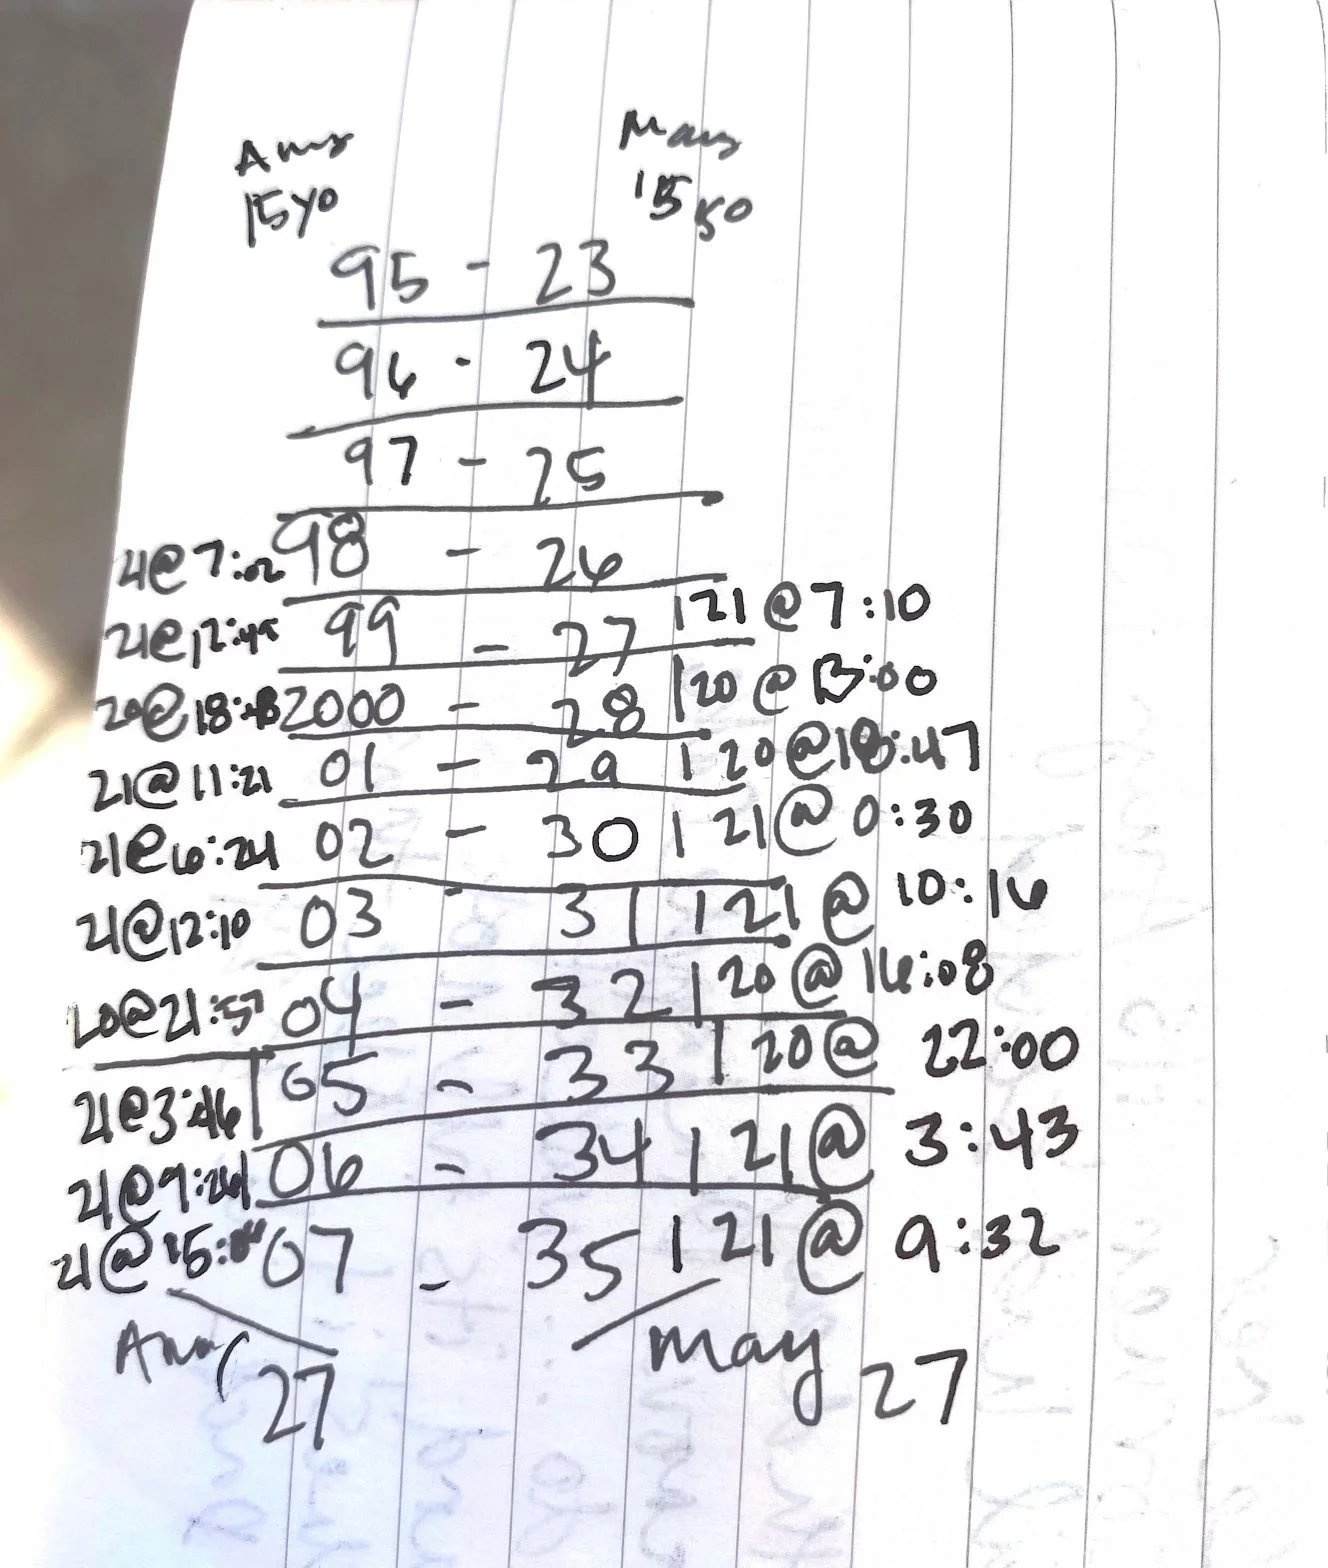 Amy May
15yo 15yo
95 - 23
96 - 24
97 - 25
21@7:02 98 - 26
21@12:45 99 - 27 | 21@7:10
20@18:43 2000 - 28 | 20@13:00
21@11:21 01 - 29 | 20@18:47
21@6:24 02 - 30 | 21@0:30
21@12:10 03 - 31 | 21@10:16
20@21:57 04 - 32 | 20@16:08
21@3:46 | 05 - 33 | 20@22:00
21@9:26 | 06 - 34 | 21@3:43
21@15: 07 - 35 | 21@9:32
Amy May
27 27